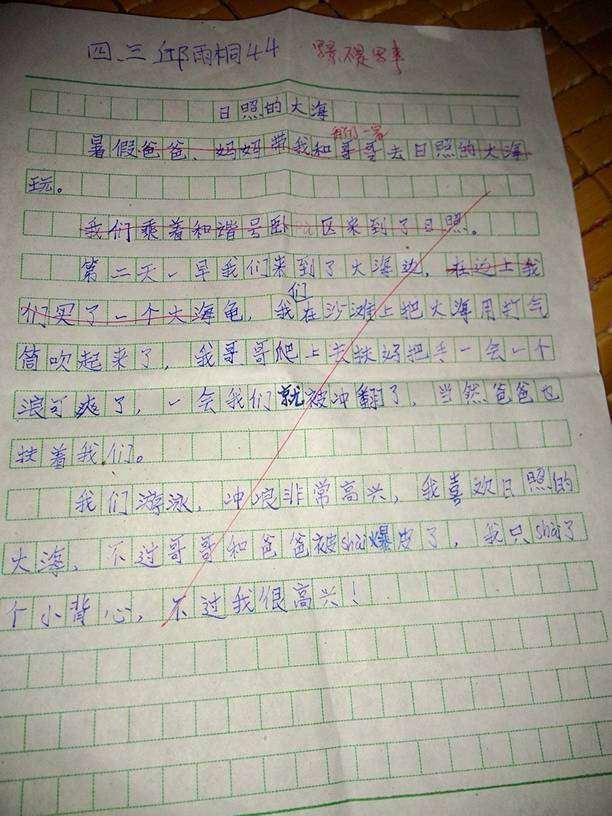 四.三 邱雨桐44 景.不是男事
日照的大海
我们一家
暑假爸爸、妈妈带我和哥哥去日照的大海
玩。
我们乘着和谐号卧区来到了日照。
第二天一早我们来到了大海边,在边上我
们
们买了一个大海龟,我在沙滩上把大海用打气
筒吹起来了,我哥哥爬上去扶好把手一会一个
浪可爽了,一会我们就被冲翻了,当然爸爸也
扶着我们。
我们游泳,冲浪非常高兴,我喜欢日照的
大海,不过哥哥和爸爸被shai爆皮了,我只shai了
个小背心,不过我很高兴!